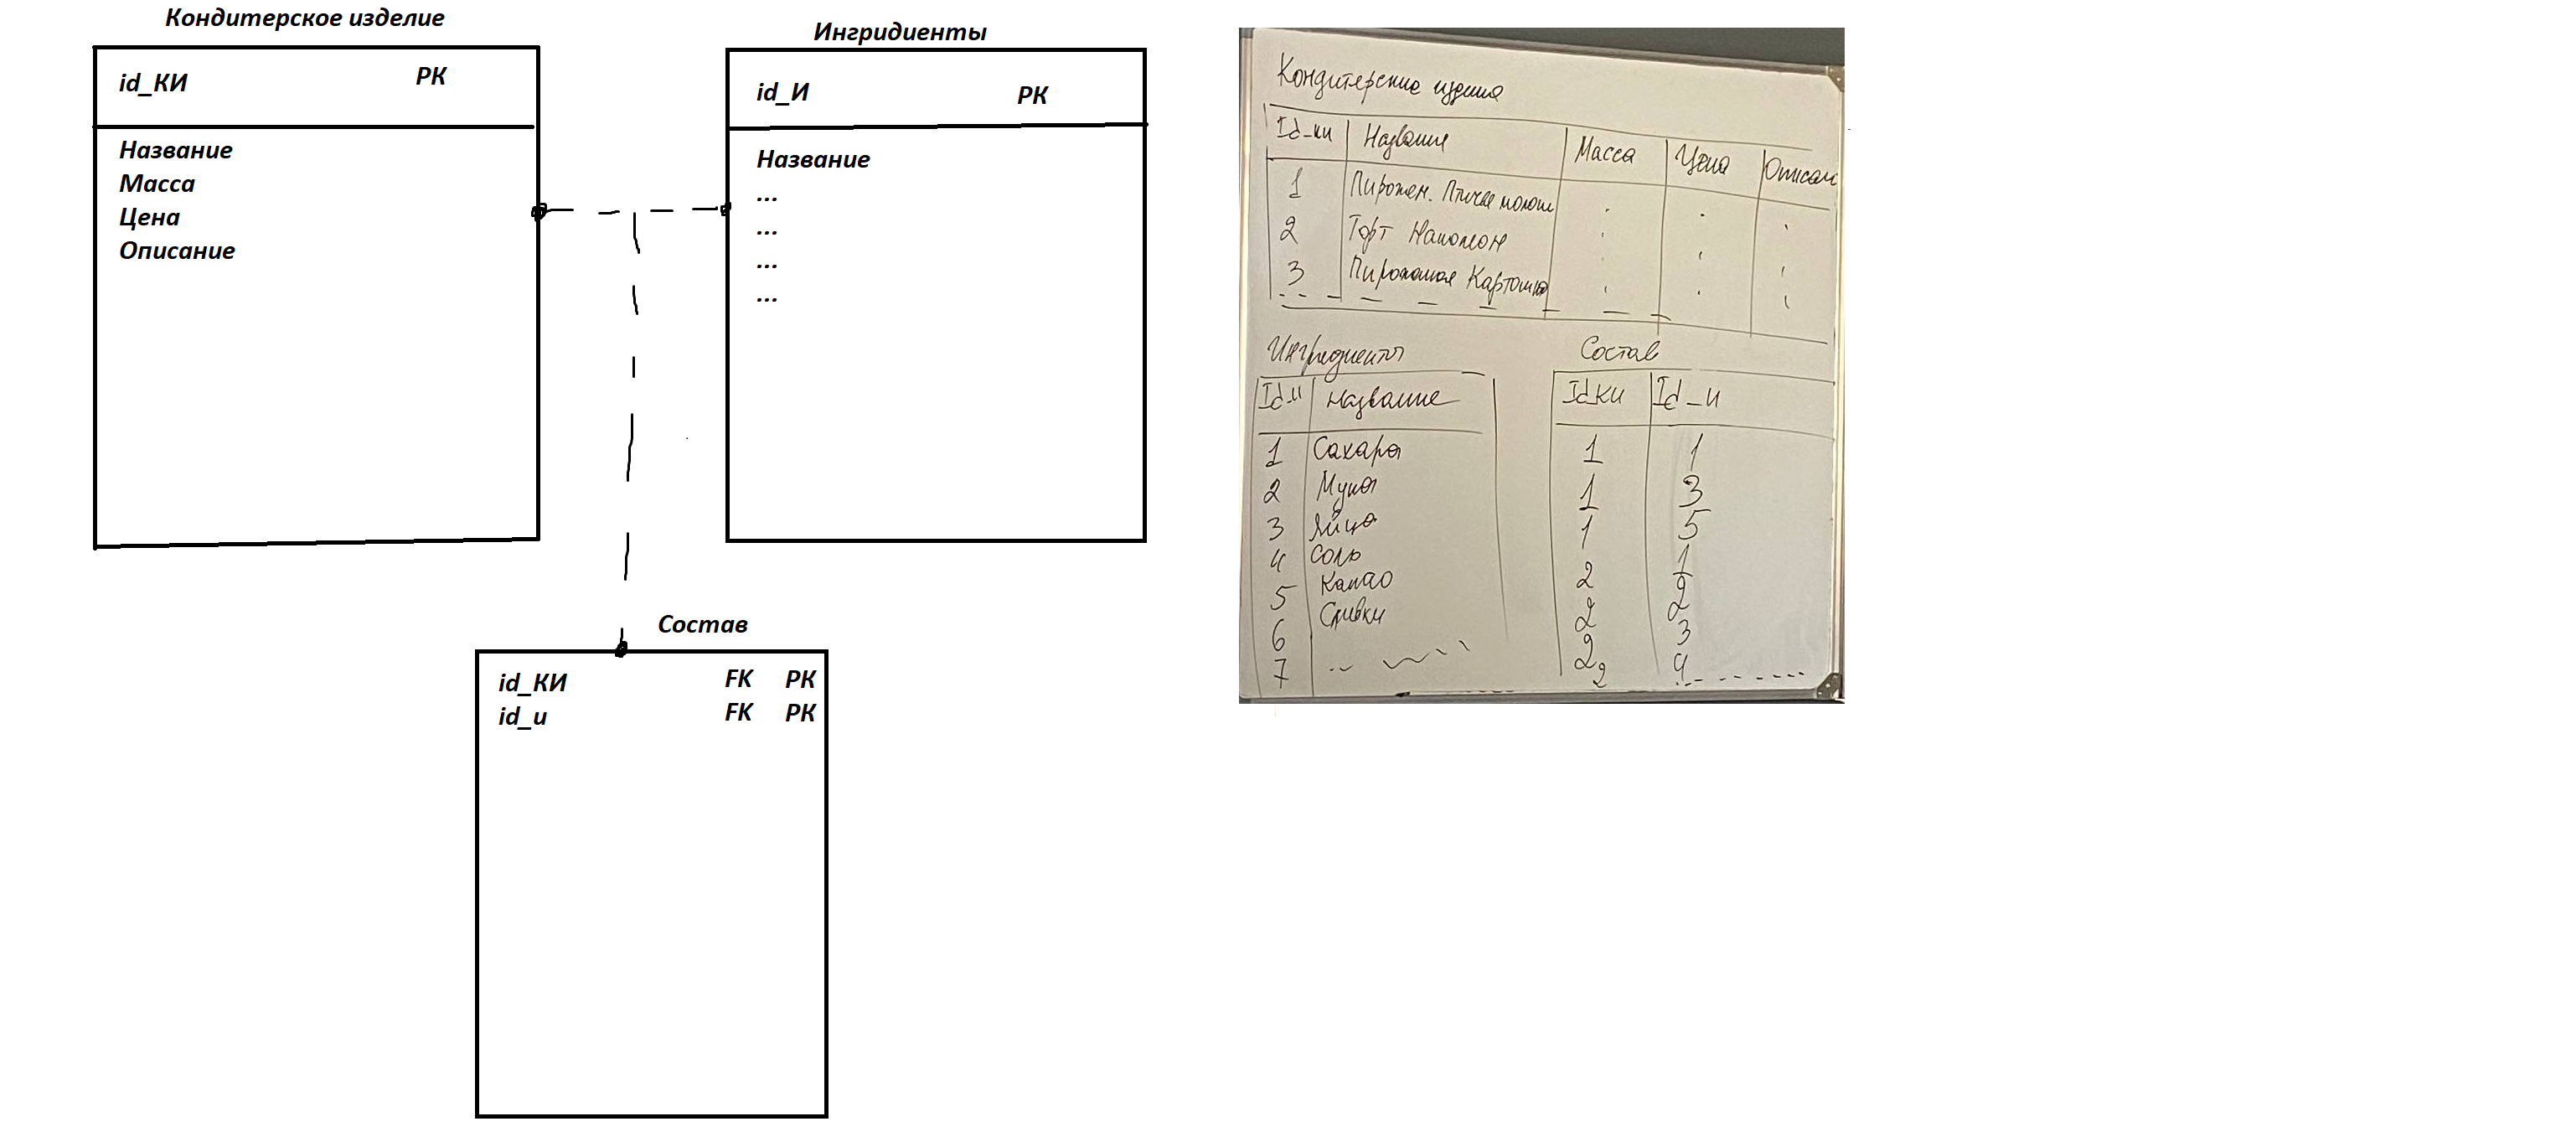 Кондитерское изделие
id_КИ PK
Название
Масса
Цена
Описание
Ингридиенты
id_И PK
Название
...
...
...
...
Состав
id_КИ FK PK
id_и FK PK
Кондитерские изделия
Id_ки Название Масса Цена Описан
1 Пирожен. Птичье молоко
2 Торт Наполеон
3 Пирожное Картошка
Ингридиенты
Id_и Название
1 Сахара
2 Мука
3 Яйца
4 Соль
5 Какао
6 Сливки
7
Состав
Id_ки Id_и
1 1
1 3
1 5
2 1
2 2
2 3
2 4
2